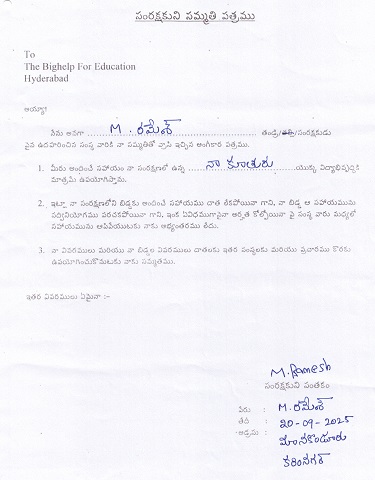 సంరక్షకుని సమ్మతి పత్రము
To
The Bighelp For Education
Hyderabad
అయ్యా!
నేను అనగా M. రమేశ్ తండ్రి/తల్లి/సంరక్షకుడు
పైన ఉదహరించిన సంస్థ వారికి నా సమ్మతితో వ్రాసి ఇచ్చిన అంగీకార పత్రము.
1. మీరు అందించే సహాయం నా సంరక్షణలో ఉన్న నా కూతురు యొక్క విద్యాభివృద్ధికి
మాత్రమే ఉపయోగిస్తాను.
2. ఇట్లా నా సంరక్షణలోని బిడ్డకు అందించే సహాయము దాత లేకపోయినా గాని, నా బిడ్డ ఆ సహాయమును
సద్వినియోగము పరచకపోయినా గాని, ఇంక ఏవిధముగానైనా అర్హత కోల్పోయినా పై సంస్థ వారు మధ్యలో
సహాయమును ఆపివేయుటకు నాకు అభ్యంతరము లేదు.
3. నా వివరములు మరియు నా బిడ్డల వివరములు దాతలకు ఇతర సంస్థలకు మరియు ప్రచారము కొరకు
ఉపయోగించుకొనుటకు నాకు సమ్మతము.
ఇతర వివరములు ఏమైనా :-
M. Ramesh
సంరక్షకుని సంతకం
పేరు : M. రమేశ్
తేదీ : 20-09-2025
అడ్రసు : మానకొండూరు
కరీంనగర్